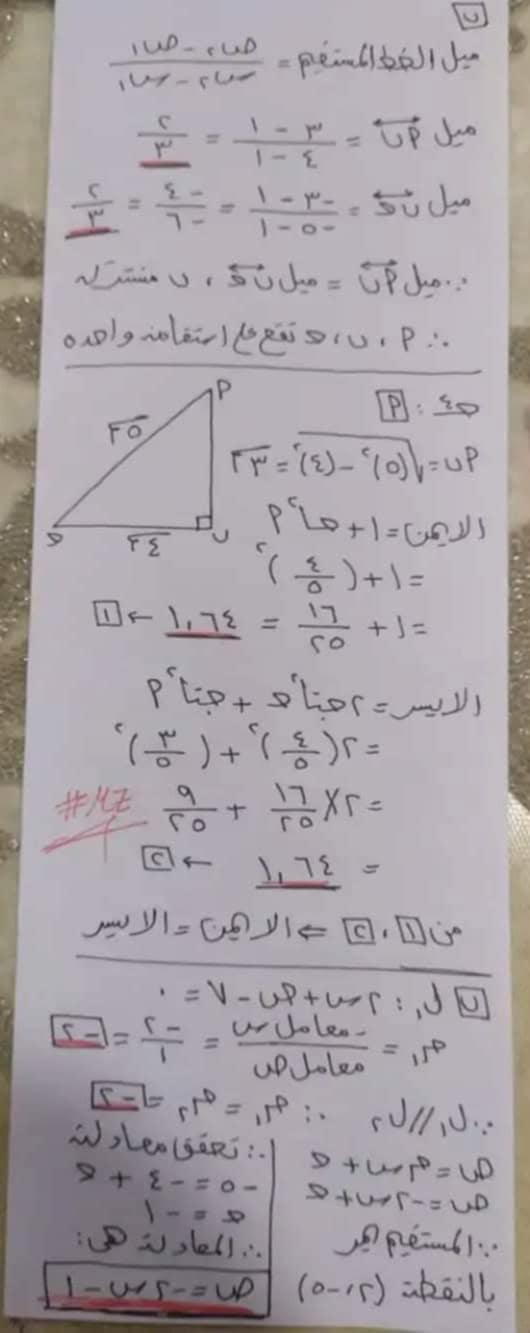 ب
ميل الخط المستقيم = (ص٢ - ص١) / (س٢ - س١)
ميل أب = (٣ - ١) / (٤ - ١) = ٢/٣
ميل ب حـ = (-٣ - ١) / (-٥ - ١) = -٤/-٦ = ٢/٣
∵ ميل أب = ميل ب حـ ، ب مشتركه
∴ أ ، ب ، حـ تقع على استقامه واحده
حـ٤ : أ
أب = √((٥)² - (٤)²) = ٣
أ
٥
ب
٤
حـ
الايمن = ١ + حا² أ
= ١ + (٤/٥)²
= ١ + ١٦/٢٥ = ١,٦٤ ← ١
الايسر = ٢ حتا² حـ + حتا² أ
= ٢(٤/٥)² + (٣/٥)²
= ٢ × ١٦/٢٥ + ٩/٢٥
#MZ
= ١,٦٤ ← ٢
من ١ ، ٢ ⇐ الايمن = الايسر
ب ل١ : ٢س + ص - ٧ = ٠
م١ = -معامل س / معامل ص = -٢/١ = -٢
∵ ل١ // ل٢ ∴ م١ = م٢ = -٢
ص = م س + حـ
ص = -٢س + حـ
∵ المستقيم يمر
بالنقطة (٢، -٥)
∴ تحقق معادلته
-٥ = -٤ + حـ
حـ = -١
∴ المعادلة هى:
ص = -٢س - ١